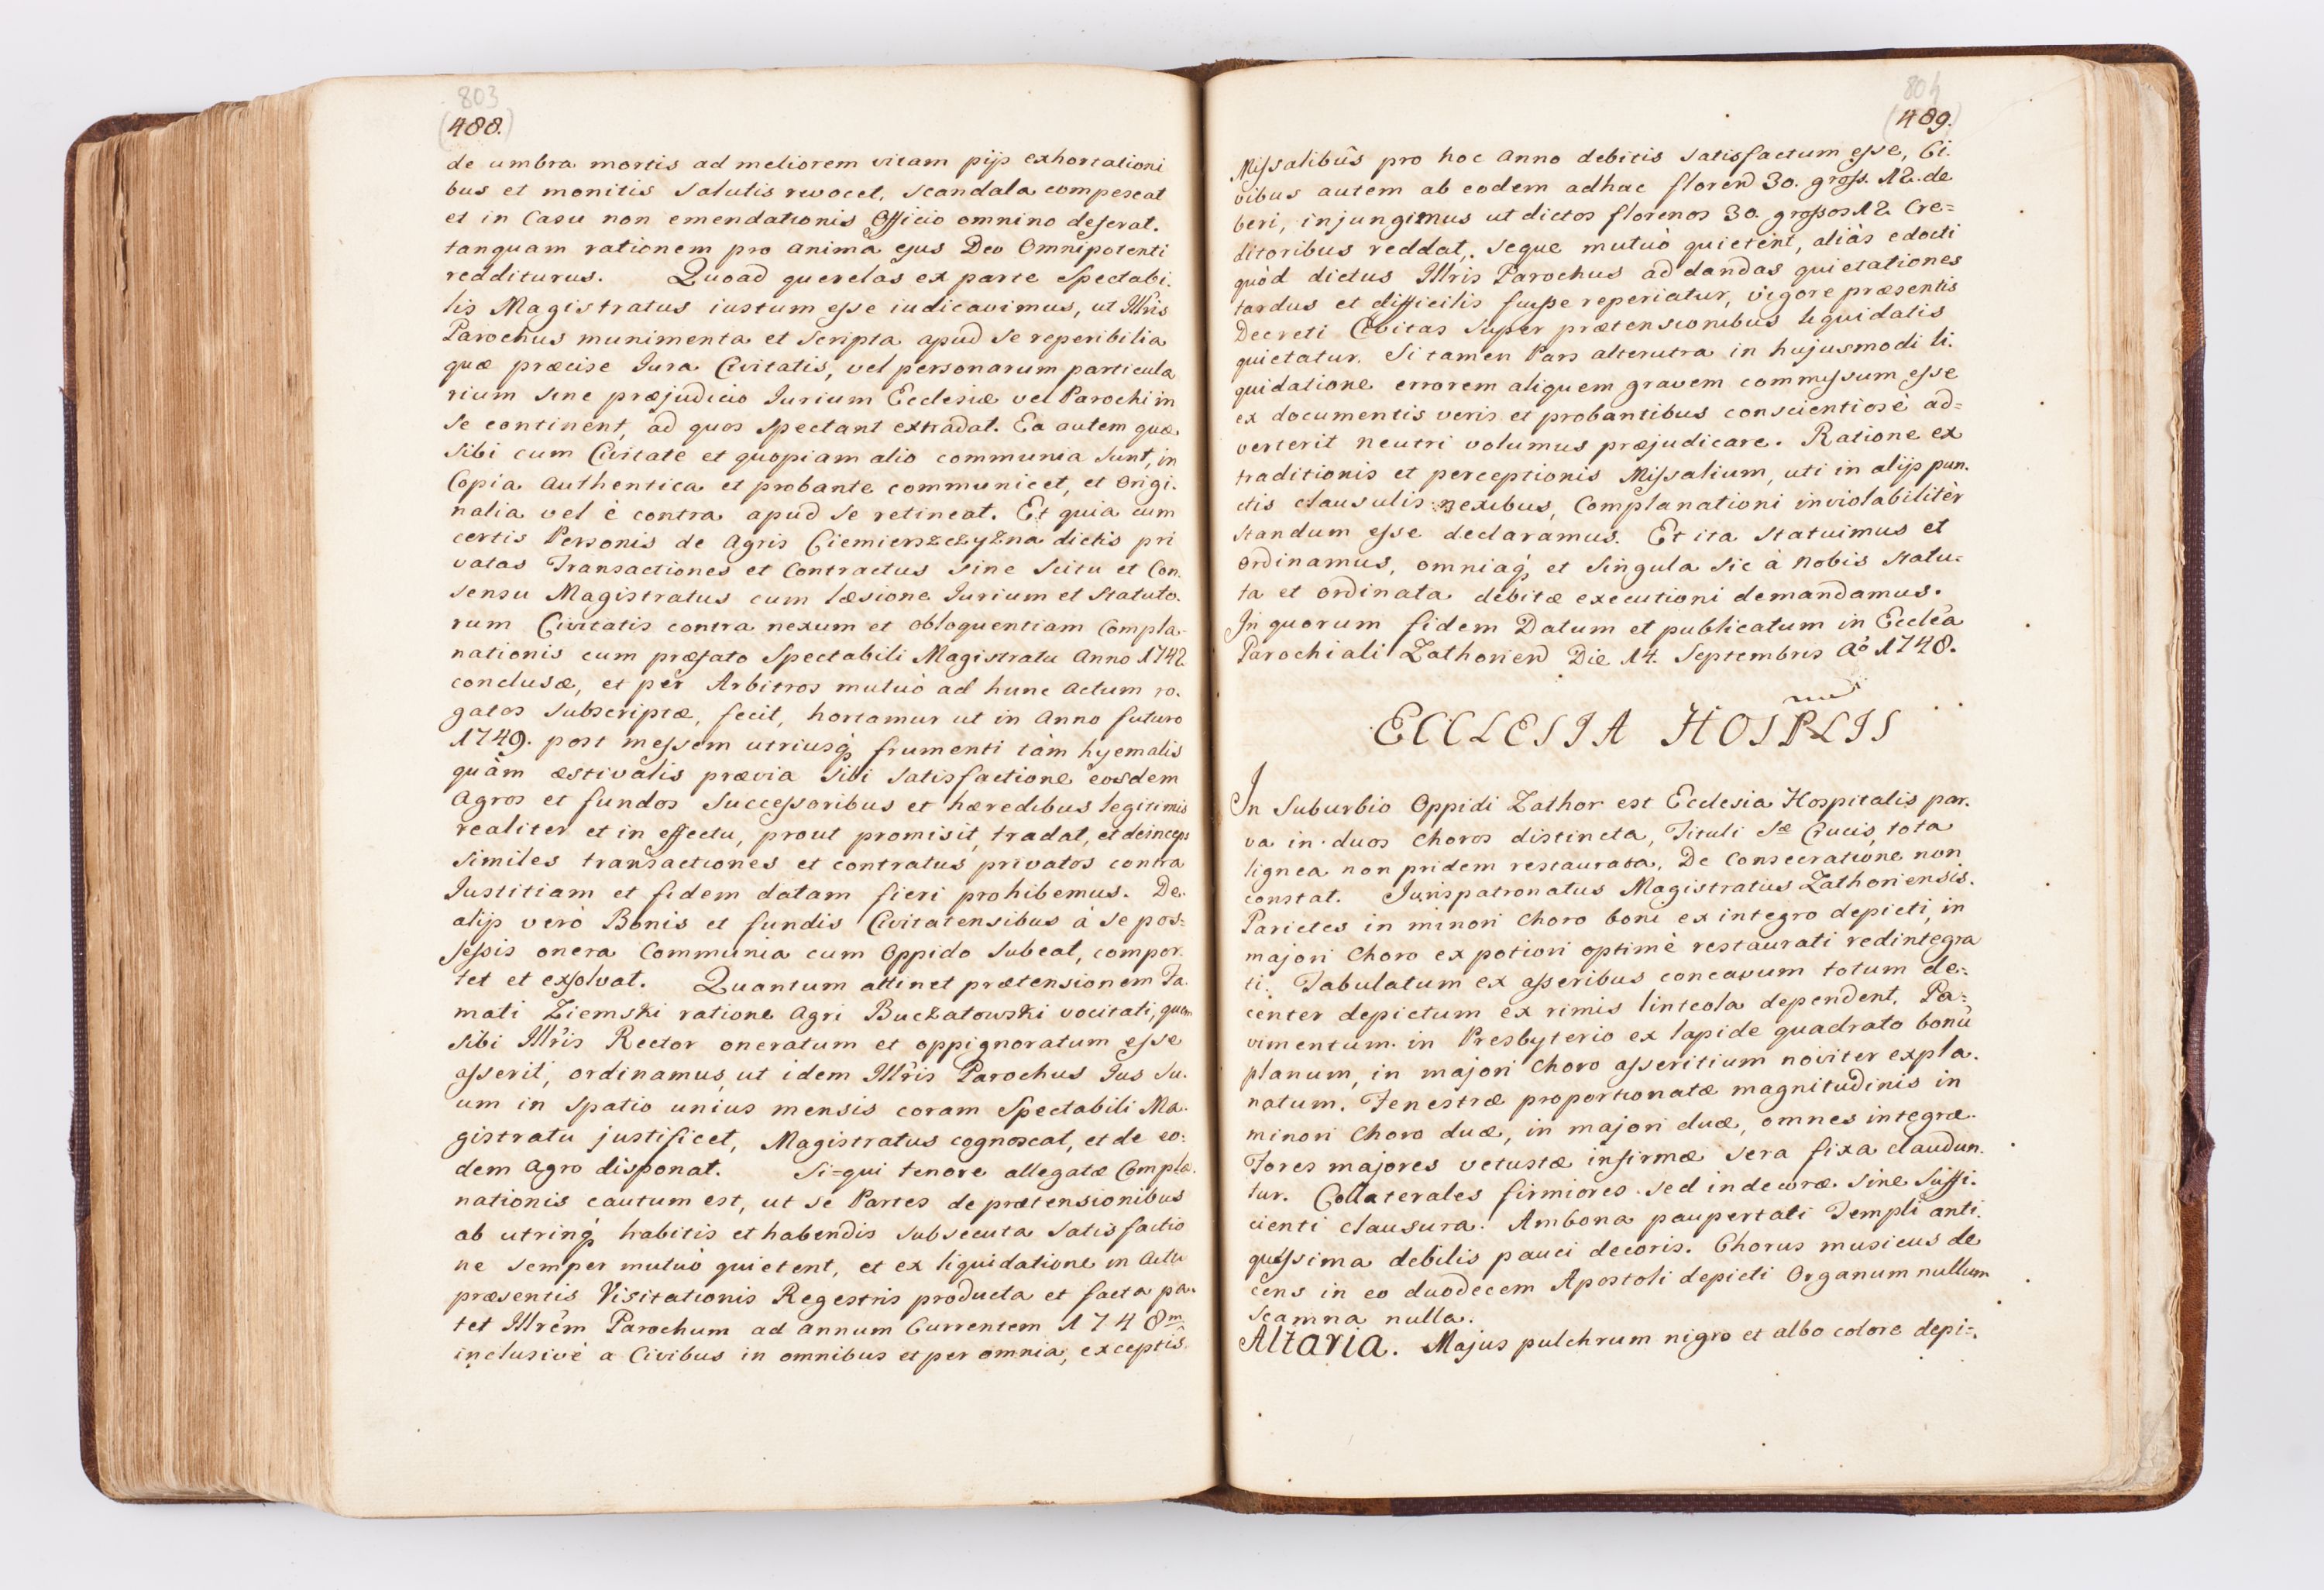 803
(488.)
de umbra mortis ad meliorem vitam pijs exhortationi
bus et monitis salutis revocet, scandala compescat
et in Casu non emendationis Officio omnino deferat.
tanquam rationem pro anima ejus Deo Omnipotenti
redditurus. Quoad querelas ex parte Spectabi.
lis Magistratus iustum esse iudicavimus, ut Illris
Parochus munimenta et Scripta apud se reperibilia
quæ præcise Jura Civitatis, vel personarum particula
rium sine præjudicio Iurium Ecclesiæ vel Parochi in
se continent, ad quos spectant extradat. Ea autem quæ
sibi cum Civitate et quopiam alio communia sunt, in
Copia Authentica et probante communicet, et Origi.
nalia vel è contra apud se retineat. Et quia cum
certis Personis de Agris Ciemierszczyzna dictis pri
vatas Transactiones et Contractus sine Scitu et Con.
sensu Magistratus cum læsione Iurium et Statuto.
rum Civitatis contra nexum et obloquentiam Compla
nationis cum præfato Spectabili Magistratu Anno 1742.
conclusæ, et per Arbitros mutuò ad hunc actum ro.
gatos subscriptæ, fecit, hortamur ut in Anno futuro
1749. post messem utriusq; frumenti tàm hyemalis
quàm æstivalis prævia sibi satisfactione eosdem
Agros et fundos Successoribus et hæredibus legitimis
realiter et in effectu, prout promisit, tradat, et deinceps
similes transactiones et contratus privatos contra
Iustitiam et fidem datam fieri prohibemus. De
alijs verò Bonis et fundis Civitatensibus à se pos=
sessis onera Communia cum Oppido subeat, compor.
tet et exsolvat. Quantum attinet prætensionem Fa.
mati Ziemski ratione Agri Buczatowski vocitati, quem
sibi Illris Rector oneratum et oppignoratum esse
asserit, ordinamus, ut idem Illris Parochus Ius su.
um in spatio unius mensis coram Spectabili Ma.
gistratu justificet, Magistratus cognoscat, et de eo=
dem Agro disponat. Si=qui tenore allegatæ Compla.
nationis cautum est, ut se Partes de prætensionibus
ab utrinq; habitis et habendis subsecuta satisfactio
ne semper mutuò quietent, et ex liquidatione in Actu
præsentis Visitationis Regestris producta et facta pa.
tet Illrem Parochum ad annum Currentem 1748m
inclusivè a Civibus in omnibus et per omnia, exceptis
804
(489.)
Missalibus pro hoc Anno debitis satisfactum esse, Ci.
vibus autem ab eodem adhac floren 30. gross. 12. de
beri, injungimus ut dictos florenos 30. grossos 12. Cre=
ditoribus reddat, seque mutuò quietent, aliàs edocti
quòd dictus Illris Parochus ad dandas quietationes
tardus et difficilis fuisse reperiatur, vigore præsentis
Decreti Civitas super prætensionibus liquidatis
quietatur. Si tamen Pars alterutra in hujusmodi li.
quidatione errorem aliquem gravem commissum esse
ex documentis veris et probantibus conscientiosè ad=
verterit neutri volumus præjudicare. Ratione ex
traditionis et perceptionis Missalium, uti in alijs pun.
ctis clausulis nexibus, Complanationi inviolabilitèr
standum esse declaramus. Et ita statuimus et
ordinamus, omniaq; et singula sic à Nobis statu=
ta et ordinata debitæ executioni demandamus.
In quorum fidem Datum et publicatum in Ecclea
Parochiali Zathorien Die 14. Septembris Aò 1748.
ECCLESIA HOSPLIS
In Suburbio Oppidi Zathor est Ecclesia Hospitalis par.
va in duos Choros distincta, Tituli Sæ Crucis, tota
lignea non pridem restaurata. De Consecratione non
constat. Jurispatronatus Magistratus Zathoriensis.
Parietes in minori Choro boni ex integro depicti, in
majori Choro ex potiori optimè restaurati redintegra
ti. Tabulatum ex asseribus concavum totum de=
center depictum ex rimis linteola dependent. Pa=
vimentum in Presbyterio ex lapide quadrato bonu
planum, in majori Choro asseritium noviter expla.
natum. Fenestræ proportionatæ magnitudinis in
minori Choro duæ, in majori duæ, omnes integræ.
Fores majores vetustæ infirmæ sera fixa claudun.
tur. Collaterales firmiores sed indecoræ sine suffi.
cienti clausura. Ambona paupertati Templi anti.
quissima debilis pauci decoris. Chorus musicus de
cens in eo duodecem Apostoli depicti Organum nullum
scamna nulla.
Altaria. Majus pulchrum nigro et albo colore depi=.